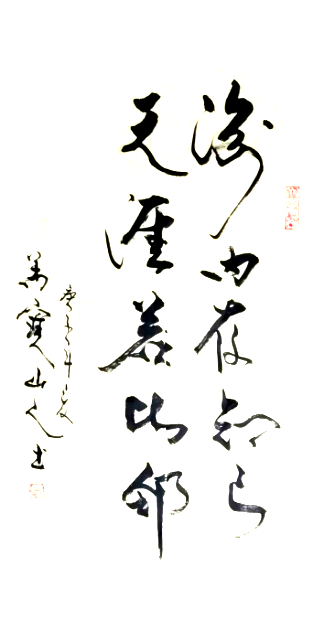 海内存知己
天涯若比邻
庚子年之夏
万宝山人书